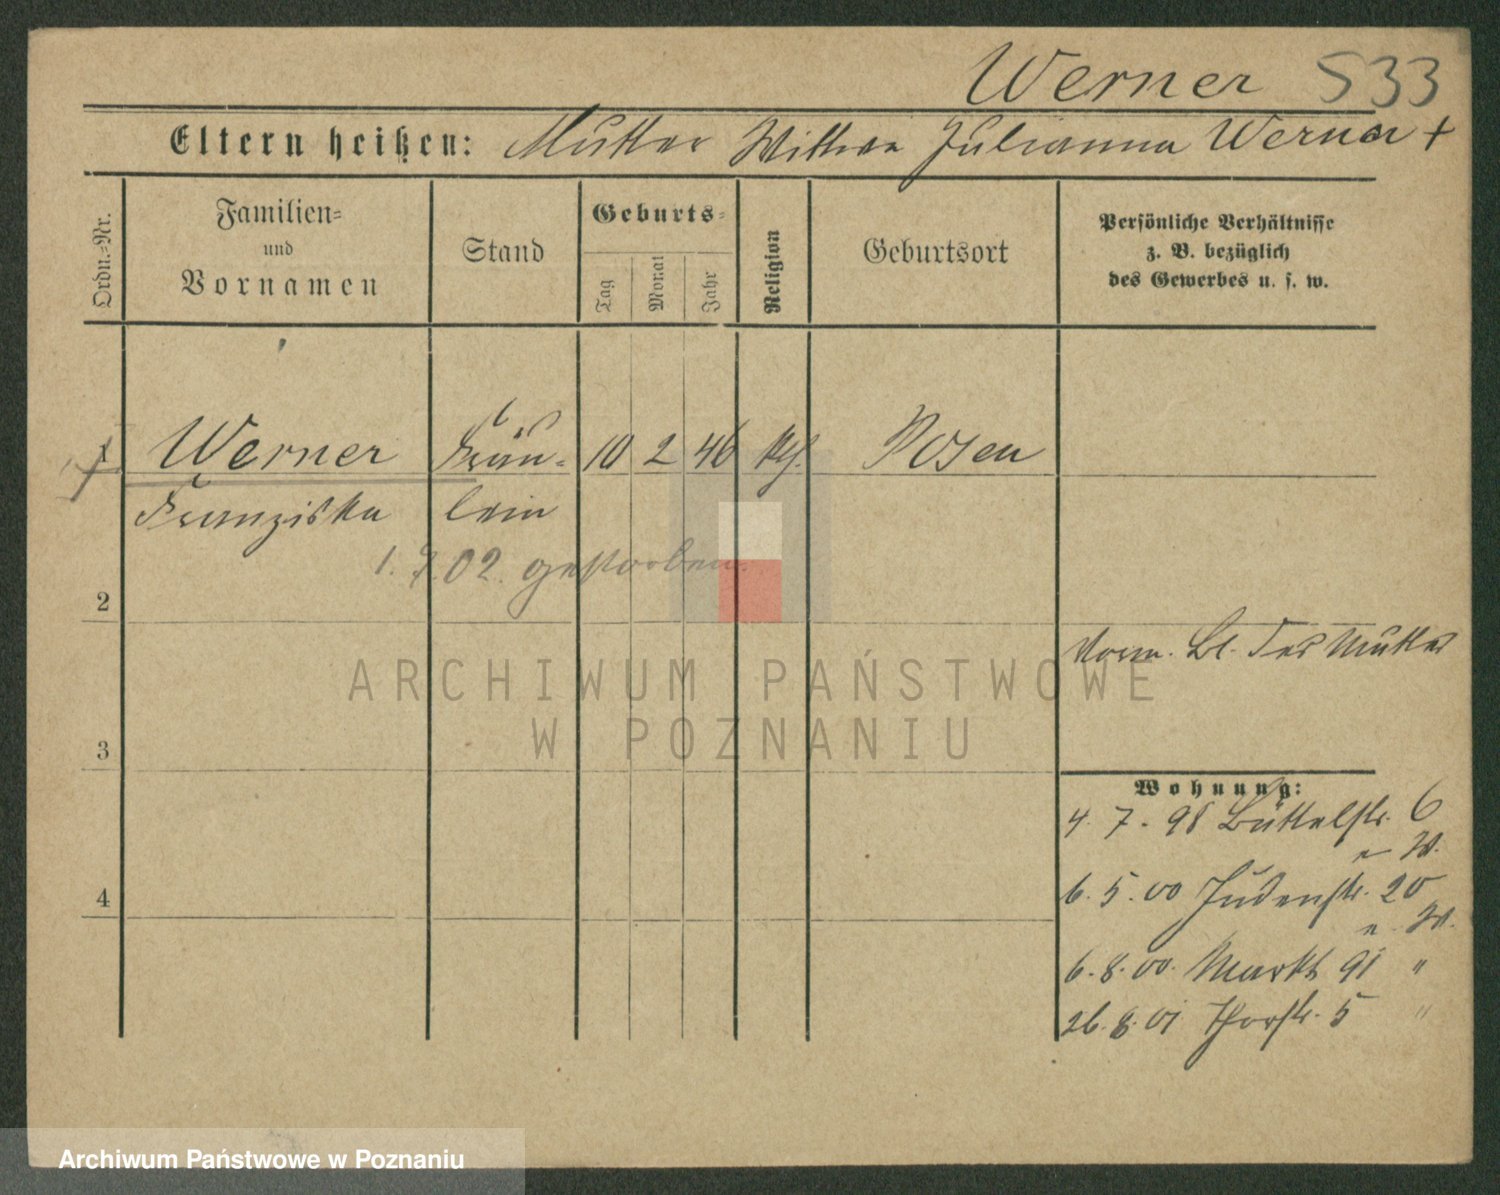 Werner 533
Eltern heißen: Mutter Wittwe Julianna Werner +
Ordn.-Nr.
Familien-
und
Vornamen
Stand
Geburts-
Tag
Monat
Jahr
Religion
Geburtsort
Persönliche Verhältnisse
z. B. bezüglich
des Gewerbes u. s. w.
1 Werner Fräu- 10 2 46 Posen
Franziska lein
1. 7. 02. gestorben.
2
Vorm. Bl. der Mutter
3
Wohnung:
4. 7. 98 Büttelstr. 6
6. 5. 00 Judenstr. 20
6. 8. 00. Markt 91 "
26. 8. 01 Thorstr. 5 "
4
ARCHIWUM PAŃSTWOWE
W POZNANIU
Archiwum Państwowe w Poznaniu